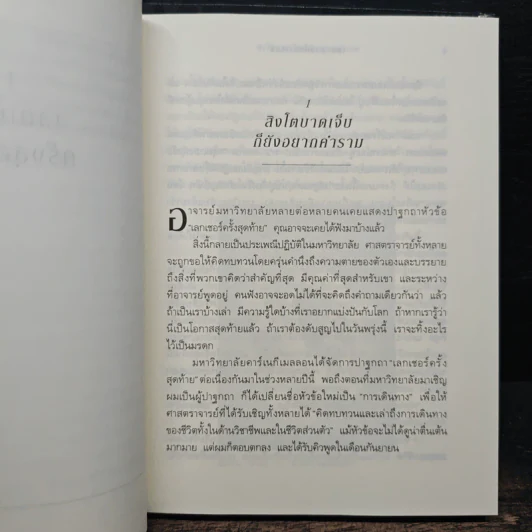 ๑
สิงโตบาดเจ็บ
ก็ยังอยากคำราม
อาจารย์มหาวิทยาลัยหลายต่อหลายคนเคยแสดงปาฐกถาหัวข้อ
"เลกเชอร์ครั้งสุดท้าย" คุณอาจจะเคยได้ฟังมาบ้างแล้ว
สิ่งนี้กลายเป็นประเพณีปฏิบัติในมหาวิทยาลัย ศาสตราจารย์ทั้งหลาย
จะถูกขอให้คิดทบทวนโดยครุ่นคำนึงถึงความตายของตัวเองและบรรยาย
ถึงสิ่งที่พวกเขาคิดว่าสำคัญที่สุด มีคุณค่าที่สุดสำหรับเขา และระหว่าง
ที่อาจารย์พูดอยู่ คนฟังอาจจะอดไม่ได้ที่จะคิดถึงคำถามเดียวกันว่า แล้ว
ถ้าเป็นเราบ้างเล่า มีความรู้ใดบ้างที่เราอยากแบ่งปันกับโลก ถ้าหากเรารู้ว่า
นี่เป็นโอกาสสุดท้ายแล้ว ถ้าเราต้องดับสูญไปในวันพรุ่งนี้ เราจะทิ้งอะไร
ไว้เป็นมรดก
มหาวิทยาลัยคาร์เนกีเมลลอนได้จัดการปาฐกถา "เลกเชอร์ครั้ง
สุดท้าย" ต่อเนื่องกันมาในช่วงหลายปีนี้ พอถึงตอนที่มหาวิทยาลัยมาเชิญ
ผมเป็นผู้ปาฐกถา ก็ได้เปลี่ยนชื่อหัวข้อใหม่เป็น "การเดินทาง" เพื่อให้
ศาสตราจารย์ที่ได้รับเชิญทั้งหลายได้ "คิดทบทวนและเล่าถึงการเดินทาง
ของชีวิตทั้งในด้านวิชาชีพและในชีวิตส่วนตัว" แม้หัวข้อจะไม่ได้ดูน่าตื่นเต้น
มากมาย แต่ผมก็ตอบตกลง และได้รับคิวพูดในเดือนกันยายน